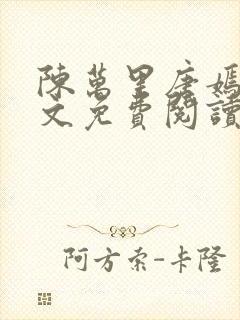 陳萬里唐嫣
文免費閱讀
阿方索-卡隆